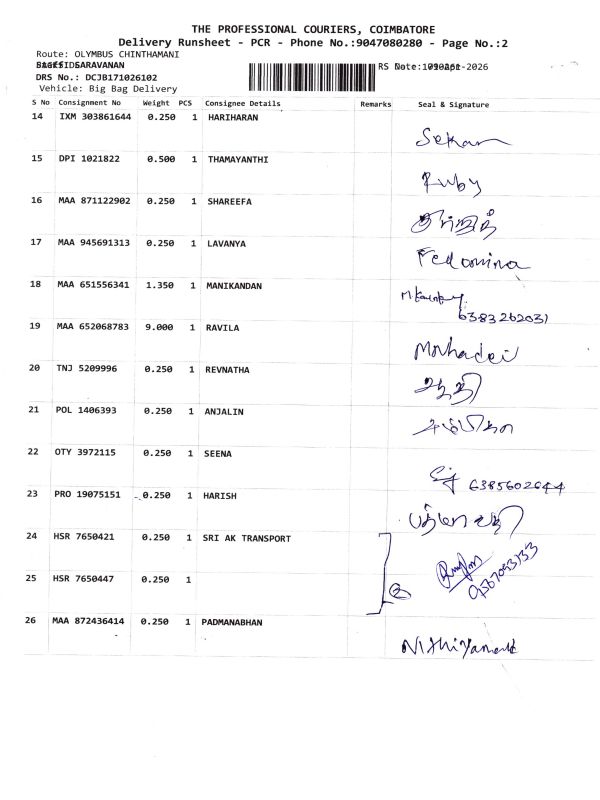 THE PROFESSIONAL COURIERS, COIMBATORE
Delivery Runsheet - PCR - Phone No.:9047080280 - Page No.:2
Route: OLYMBUS CHINTHAMANI
SARAVANAN
DRS No.: DCJB171026102
Vehicle: Big Bag Delivery
S No Consignment No Weight PCS Consignee Details Remarks Seal & Signature
14 IXM 303861644 0.250 1 HARIHARAN Sekar
15 DPI 1021822 0.500 1 THAMAYANTHI Ruby
16 MAA 871122902 0.250 1 SHAREEFA
17 MAA 945691313 0.250 1 LAVANYA Fedomina
18 MAA 651556341 1.350 1 MANIKANDAN 6383262031
19 MAA 652068783 9.000 1 RAVILA
20 TNJ 5209996 0.250 1 REVNATHA
21 POL 1406393 0.250 1 ANJALIN
22 OTY 3972115 0.250 1 SEENA 6385602644
23 PRO 19075151 0.250 1 HARISH
24 HSR 7650421 0.250 1 SRI AK TRANSPORT
25 HSR 7650447 0.250 1 2
26 MAA 872436414 0.250 1 PADMANABHAN